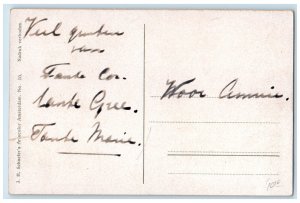 Veel groeten
van
Tante Cor.
Tante Gree.
Tante Marie.
Voor Annie.
J. H. Schaefer's Seriearfer Amsterdam. No. 53. Nadruk verboden.